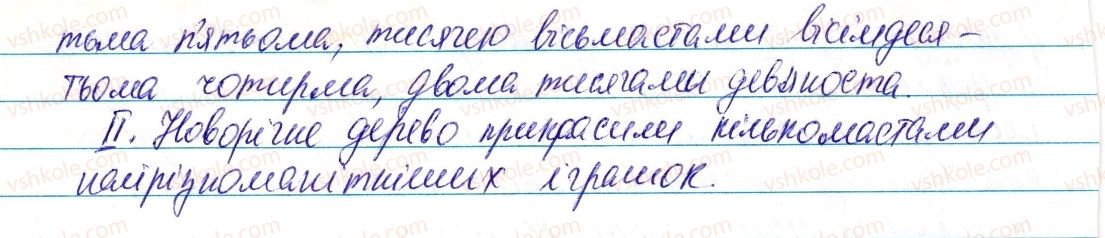 тьма п'ятьома, тисячею вісьмастами вісімдеся-
тьома чотирма, двома тисячами дев'яноста.
II. Новорічне дерево прикрасили кількомастами
найрізноманітніших іграшок.